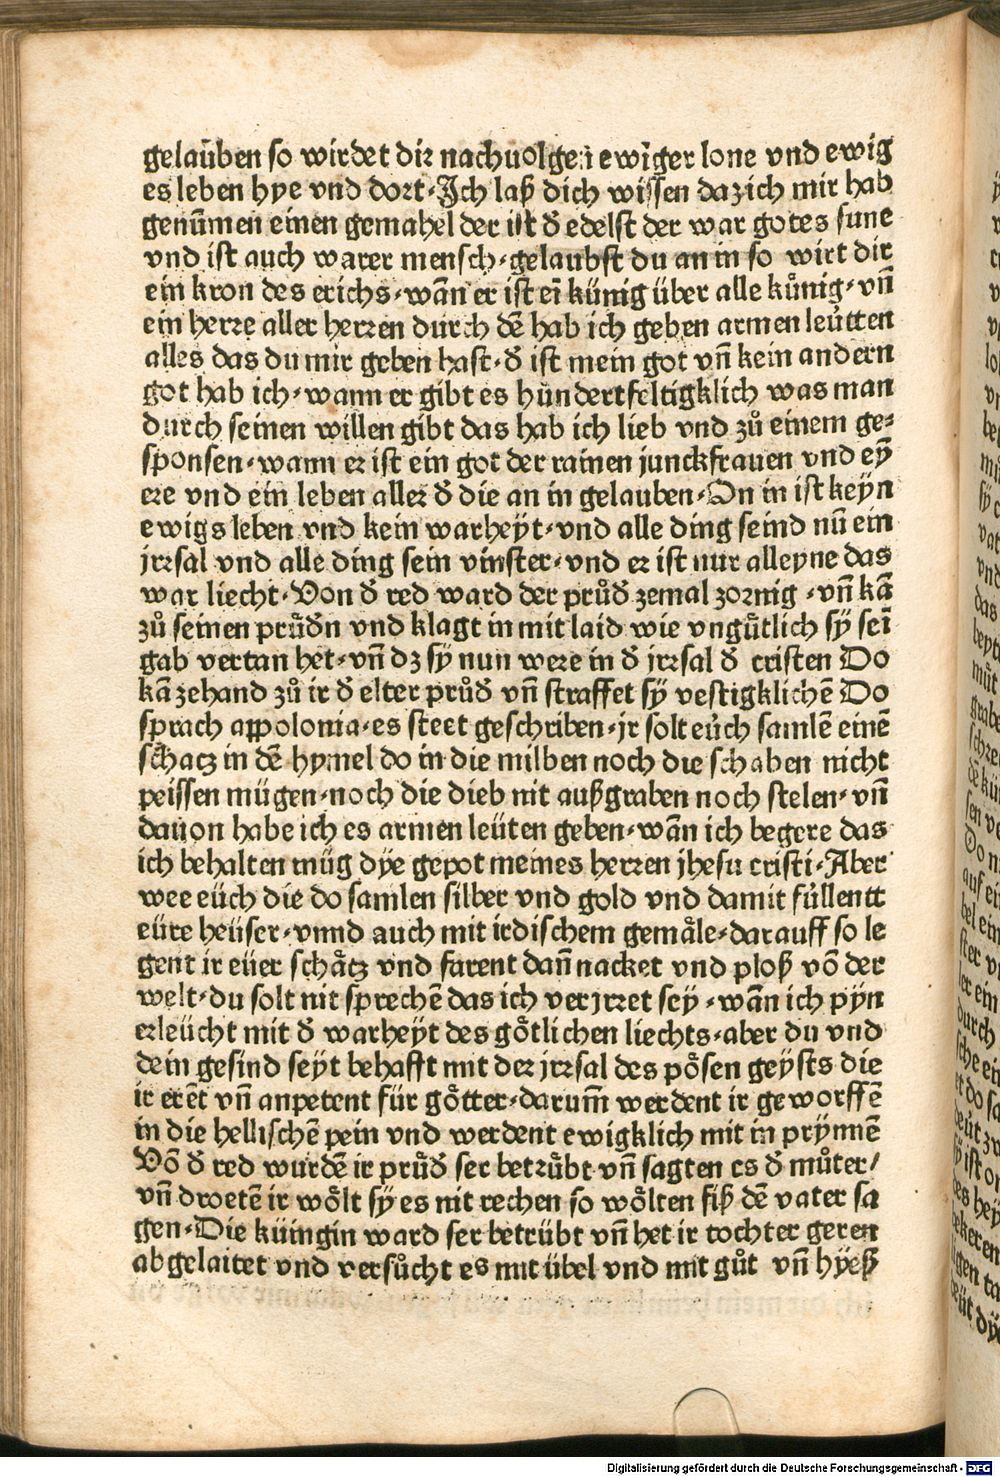 gelaüben so wirdet dir nachuolgen ewiger lone vnd ewig
es leben hye vnd dort·Ich laß dich wissen daz ich mir hab
genūmen einen gemahel der ist đ edelst der war gotes sune
vnd ist auch warer mensch·gelaubst du an in so wirt dir
ein kron des erichs·wañ er ist eī künig über alle kůnig·vñ
ein herre aller herren durch dē hab ich geben armen leütten
alles das du mir geben hast·đ ist mein got vñ kein andern
got hab ich·wann er gibt es hundertfeltigklich was man
durch seinen willen gibt das hab ich lieb vnd zů einem ge⸗
sponsen·wann er ist ein got der rainen junckfrauen vnd eÿ
ere vnd ein leben aller đ die an in gelauben·On in ist keyn
ewigs leben vnd kein warheyt·vnd alle ding seind nū ein
jrrsal vnd alle ding sein vinster·vnd er ist nur alleyne das
war liecht·Von đ red ward der průđ zemal zornig ·vñ kā
zů seinen prüđn vnd klagt in mit laid wie vngütlich sÿ seī
gab vertan het·vñ dz sÿ nun were in đ jrrsal đ cristen Do
kā zehand zů ir đ elter průđ vñ straffet sÿ vestigklichē Do
sprach appolonia·es steet geschriben·jr solt eüch samlē einē
schatz in dē hymel do in die milben noch die schaben nicht
peissen mügen·noch die dieb nit außgraben noch stelen·vñ
dauon habe ich es armen leüten geben·wañ ich begere das
ich behalten müg dÿe gepot meines herren jhesu cristi·Aber
wee eüch die do samlen silber vnd gold vnd damit füllentt
eüre heüser·vnnd auch mit irdischem gemäle·darauff so le
gent ir eüer schätz vnd farent dañ nacket vnd ploß vō der
welt·du solt nit sprechē das ich verjrret sey·wañ ich pÿn
erleücht mit đ warheyt des götlichen liechts·aber du vnd
dein gesind seyt behafft mit der jrrsal des pösen geysts die
ir erēt vñ anpetent für götter·darum̄ werdent ir geworffē
in die hellischē pein vnd werdent ewigklich mit in prÿnnē
Vō đ red wurdē ir prüđ ser betrübt vñ sagten es đ můter/
vñ droetē ir wölt sÿ es nit rechen so wölten siß dē vater sa
gen·Die küingin ward ser betrübt vñ het ir tochter geren
abgelaitet vnd versůcht es mit übel vnd mit gůt vñ hÿeß
Digitalisierung gefördert durch die Deutsche Forschungsgemeinschaft - DFG